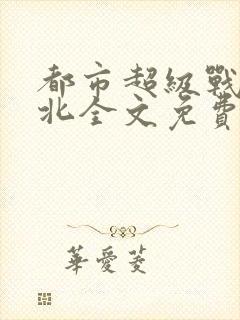 都市超級戰
北全文免費
華愛菱